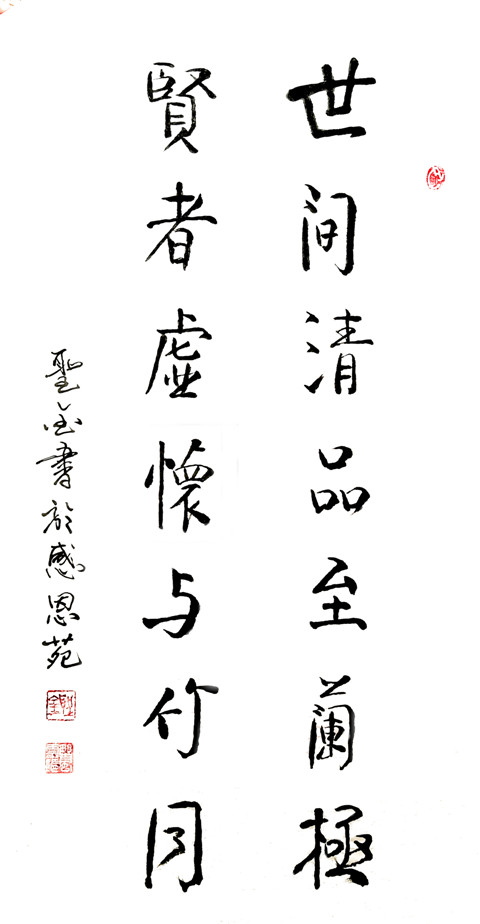 世间清品至蘭極
賢者虚懷与竹同
聖金書於感恩苑